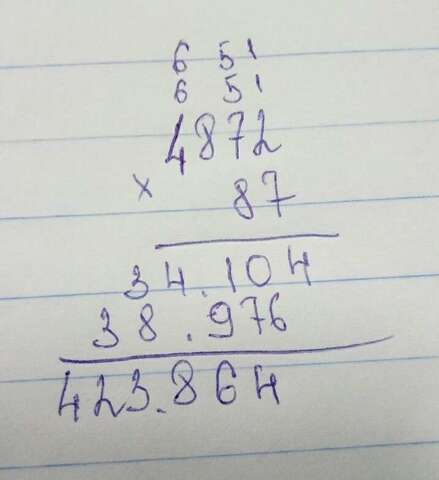 6 51
6 51
4872
x 87
34.104
38.976
423.864